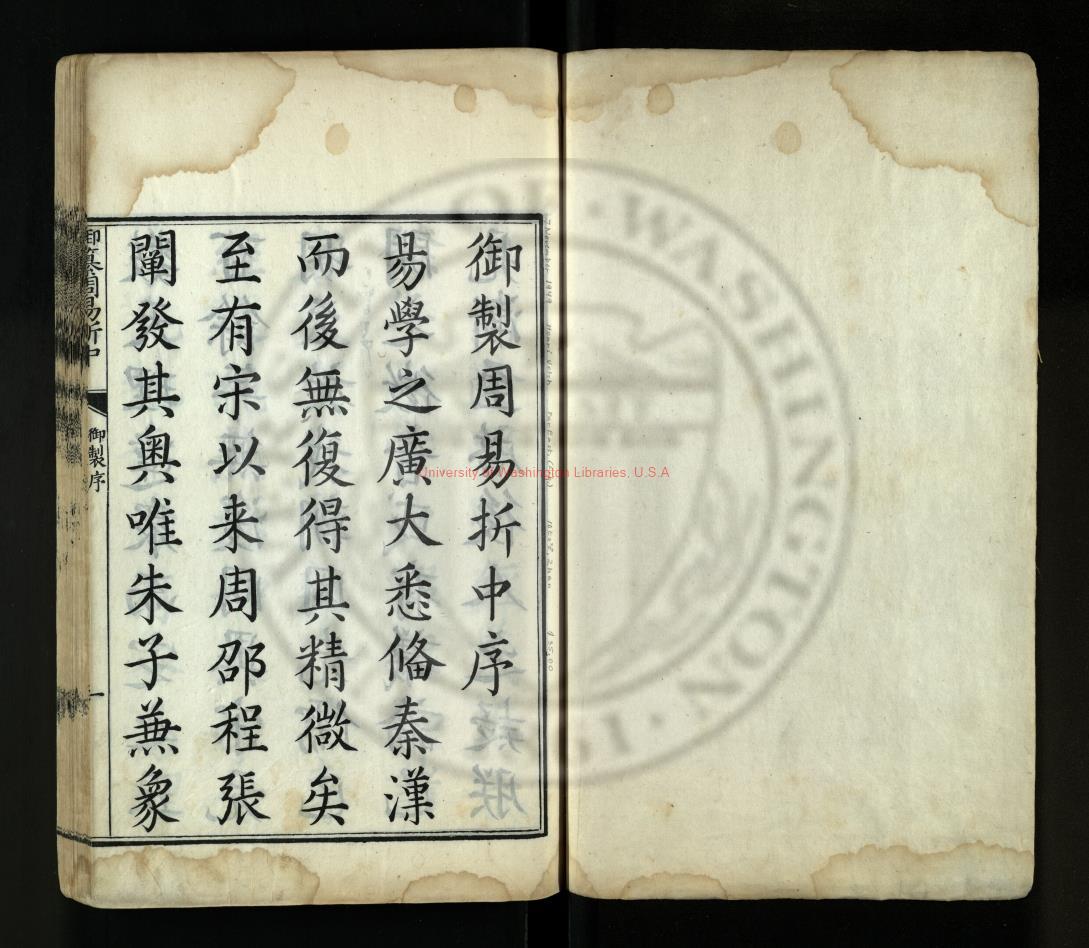 御製周易折中序
易學之廣大悉俻秦漢
而後無復得其精微矣
至有宋以来周邵程張
闡發其奥唯朱子蕪象
御纂周易折中
御製序
一
University of Washington Libraries, U.S.A
WASHINGTON